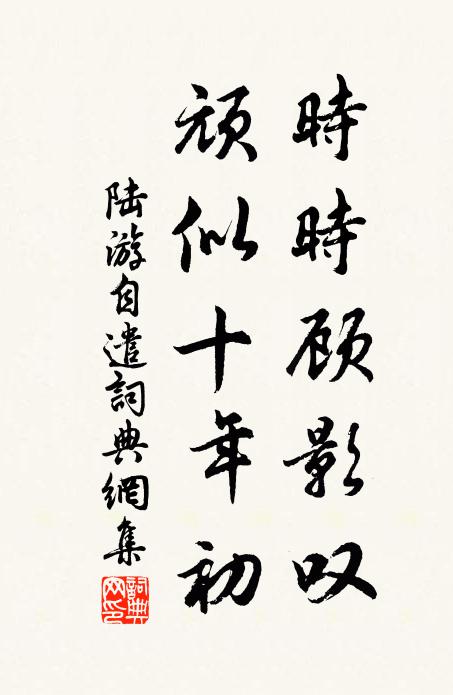 時時顾影叹
頑似十年初
陆游自遣詞典網集
詞典网印